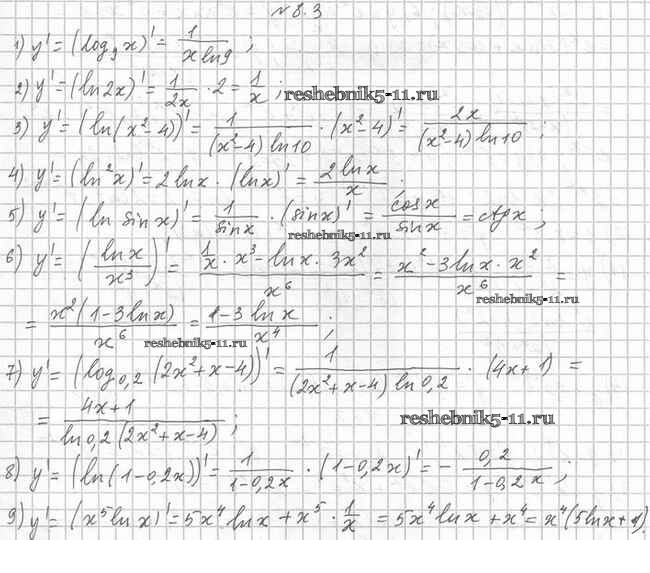 №8.3
1) y' = (log₉x)' = 1/(x ln9) ;
2) y' = (ln2x)' = 1/(2x) · 2 = 1/x ; reshebnik5-11.ru
3) y' = (ln(x²-4))' = 1/((x²-4) ln10) · (x²-4)' = 2x/((x²-4) ln10) ;
4) y' = (ln²x)' = 2lnx · (lnx)' = (2lnx)/x .
5) y' = (ln sinx)' = 1/sinx · (sinx)' = cosx/sinx = ctgx ;
reshebnik5-11.ru
6) y' = (lnx/x³)' = (1/x · x³ - lnx · 3x²)/x⁶ = (x² - 3lnx · x²)/x⁶ =
reshebnik5-11.ru
= x²(1-3lnx)/x⁶ = (1-3lnx)/x⁴ ;
reshebnik5-11.ru
7) y' = (log₀,₂(2x²+x-4))' = 1/((2x²+x-4) ln0,2) · (4x+1) =
= (4x+1)/(ln0,2(2x²+x-4)) ; reshebnik5-11.ru
8) y' = (ln(1-0,2x))' = 1/(1-0,2x) · (1-0,2x)' = - 0,2/(1-0,2x) ;
9) y' = (x⁵lnx)' = 5x⁴lnx + x⁵ · 1/x = 5x⁴lnx + x⁴ = x⁴(5lnx+1).